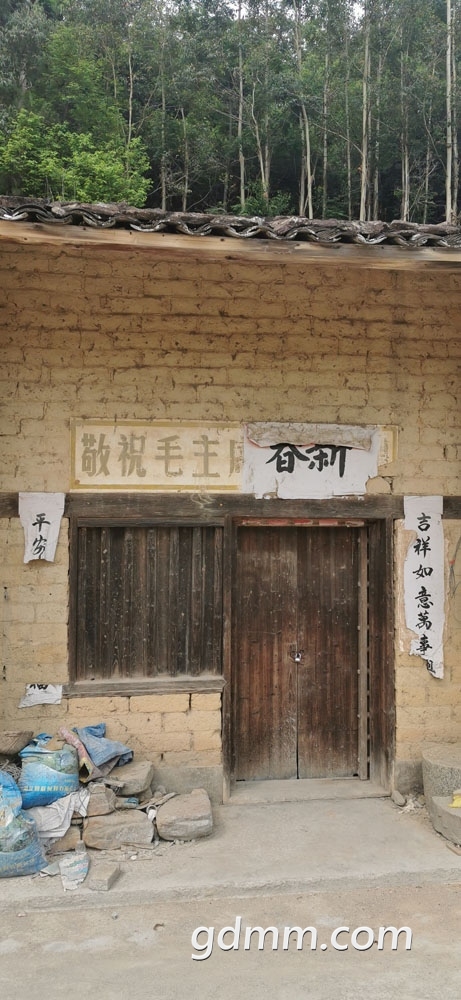 敬祝毛主
新春
平安
吉祥如意萬事
gdmm.com